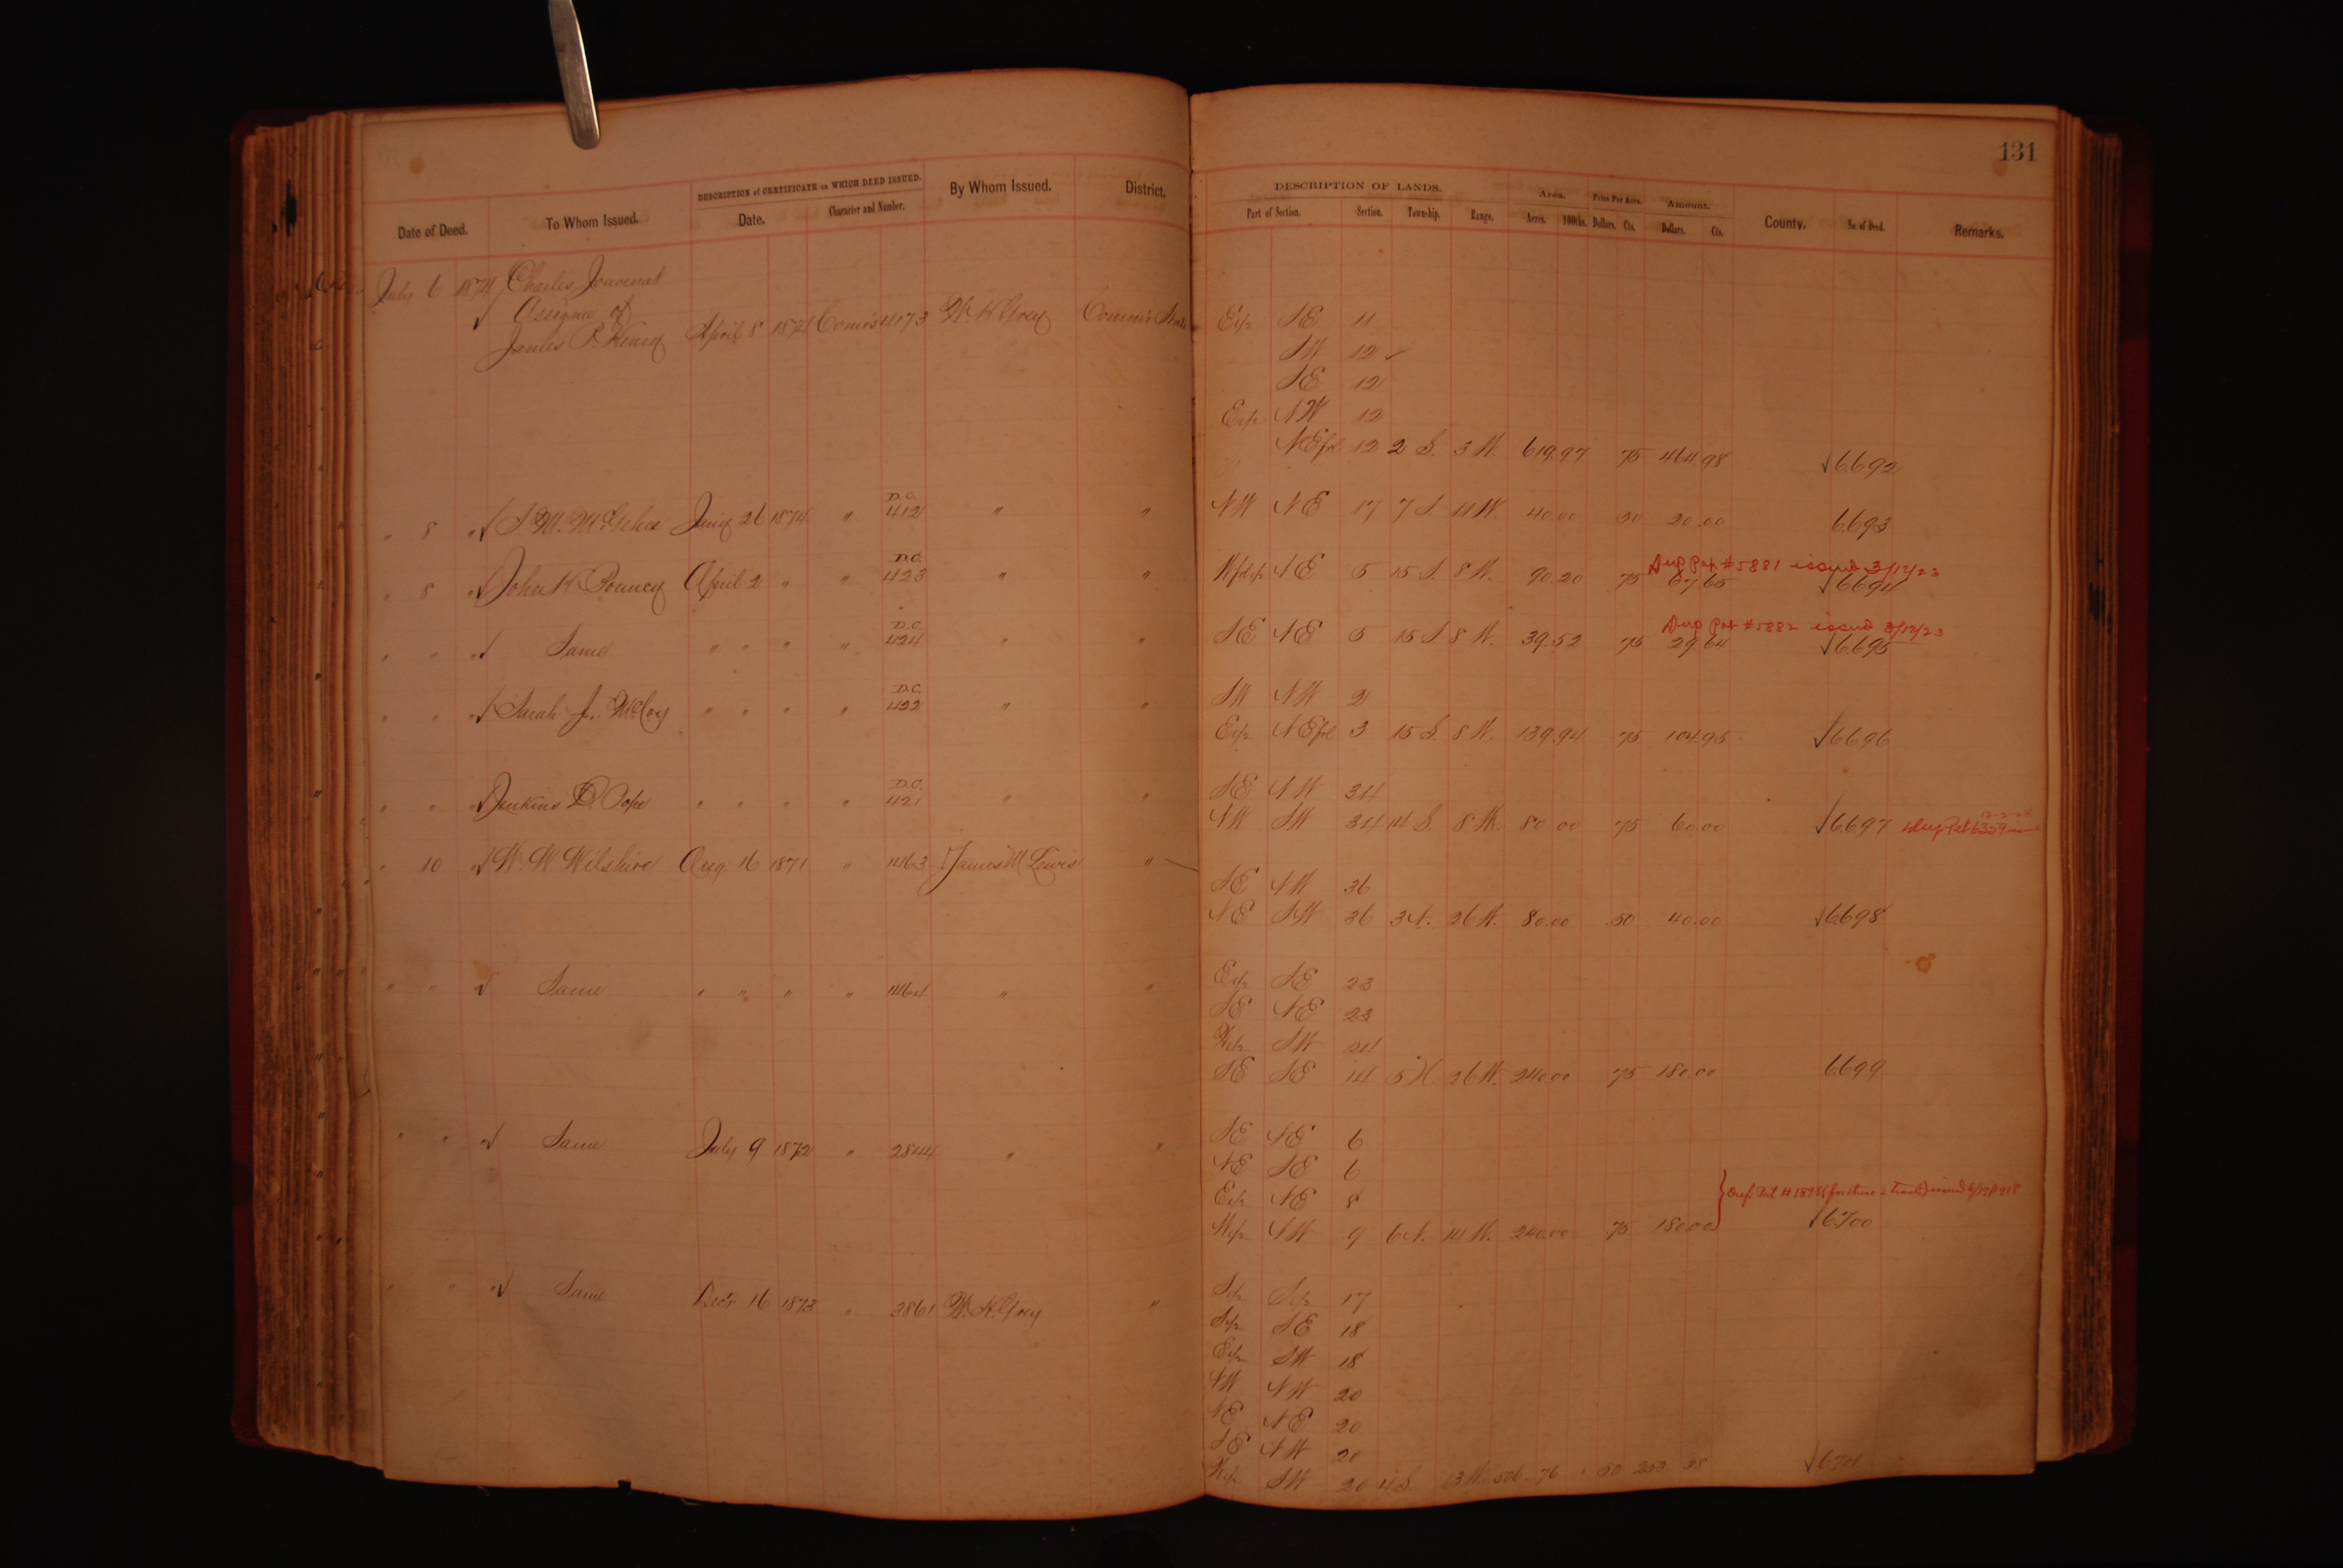 131
DESCRIPTION of CERTIFICATE on WHICH DEED ISSUED. By Whom Issued. District. DESCRIPTION OF LANDS. Area. Price Per Acre. Amount.
Date of Deed. To Whom Issued. Date. Character and Number. Part of Section. Section. Township. Range. Acres. 100ths. Dollars. Cts. Dollars. Cts. County. No. of Deed. Remarks.
July 6 1874 Charles
Assignee of
James P. Henry April 8 1874 4173 W. H. Grey E½ SE 11
SW 12 ✓
SE 12
E½ NW 12
NE frl 12 2 S. 3 W. 619.97 75 464.98 √6692
" 8 "√ S. M. McGehee " D.C. 412 " " NW NE 17 7 S. 11 W. 40.00 50 20.00 6693
Dup Pat #5881 issued 3/12/23
" 8 "√ John H Pouncy April 2 " " D.C. 423 " " NE 5 15 S. 8 W. 90.20 75 67.65 √6694
Dup Pat #5882 issued 3/12/23
" " "√ Same " " " " D.C. 424 " " SE NE 5 15 S 8 W. 39.52 75 29.64 √6695
" " "√ Sarah J. McCoy " " " " D.C. 422 " " SW NW 2
E½ NE frl 3 15 S. 8 W. 139.94 75 104.95 √6696
" " "√ Jenkins D. Pope " " " " D.C. 421 " " SE NW 34
NW SW 34 14 S. 8 W. 80 00 75 60.00 √6697 Dup Pat 6359
" 10 "√ W. W. Wilshire Aug. 16 1871 " 1463 James M Lewis " SE NW 36
NE SW 36 3 N. 26 W. 80.00 50 40.00 √6698
" " √ Same " " " " 1464 " " E½ SE 23
SE NE 23
W½ SW 24
SE SE 14 5 N 26 W. 240.00 75 180.00 6699
" " "√ Same July 9 1872 " 2844 " " SE NE 6
NE SE 6
E½ NE 8
W½ NW 9 6 N. 14 W. 240.00 75 180.00 √6700
} Dup. Pat # 1898 (for these 2 Tracts) issued 6/19/1918
" " "√ Same Decr 16 1873 " 3861 W. H. Grey " S½ S½ 17
S½ SE 18
E½ SW 18
NW NW 20
NE NE 20
SE NW 20
W½ SW 20 11 S. 13 W. 506.76 50 253 38 √6701